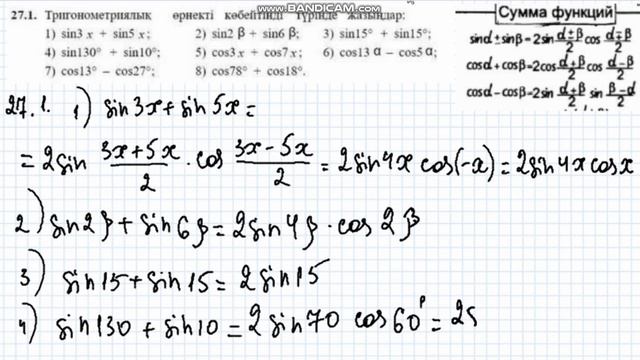 WWW.BANDICAM.COM
27.1. Тригонометриялық өрнекті көбейтінді түрінде жазыңдар:
1) sin3x + sin5x; 2) sin2β + sin6β; 3) sin15° + sin15°;
4) sin130° + sin10°; 5) cos3x + cos7x; 6) cos13α − cos5α;
7) cos13° − cos27°; 8) cos78° + cos18°.
Сумма функций
sinα±sinβ=2sin (α±β)/2 cos (α∓β)/2
cosα+cosβ=2cos (α+β)/2 cos (α−β)/2
cosα−cosβ=2sin (α+β)/2 sin (β−α)/2
27.1. 1) sin3x + sin5x =
= 2sin (3x+5x)/2 · cos (3x−5x)/2 = 2sin4x cos(−x) = 2sin4x cosx
2) sin2β + sin6β = 2sin4β · cos2β
3) sin15 + sin15 = 2sin15
4) sin130 + sin10 = 2sin70 cos60° = 2s